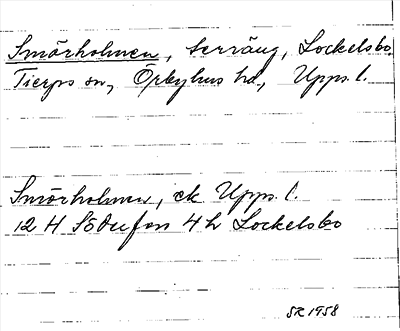 Smörholmen, terräng, Lockelsbo,
Tierps sn, Örbyhus hd, Upps. l.
Smörholmen, ek Upps. l.
12 H Söderfors 4 h Lockelsbo
SR 1958